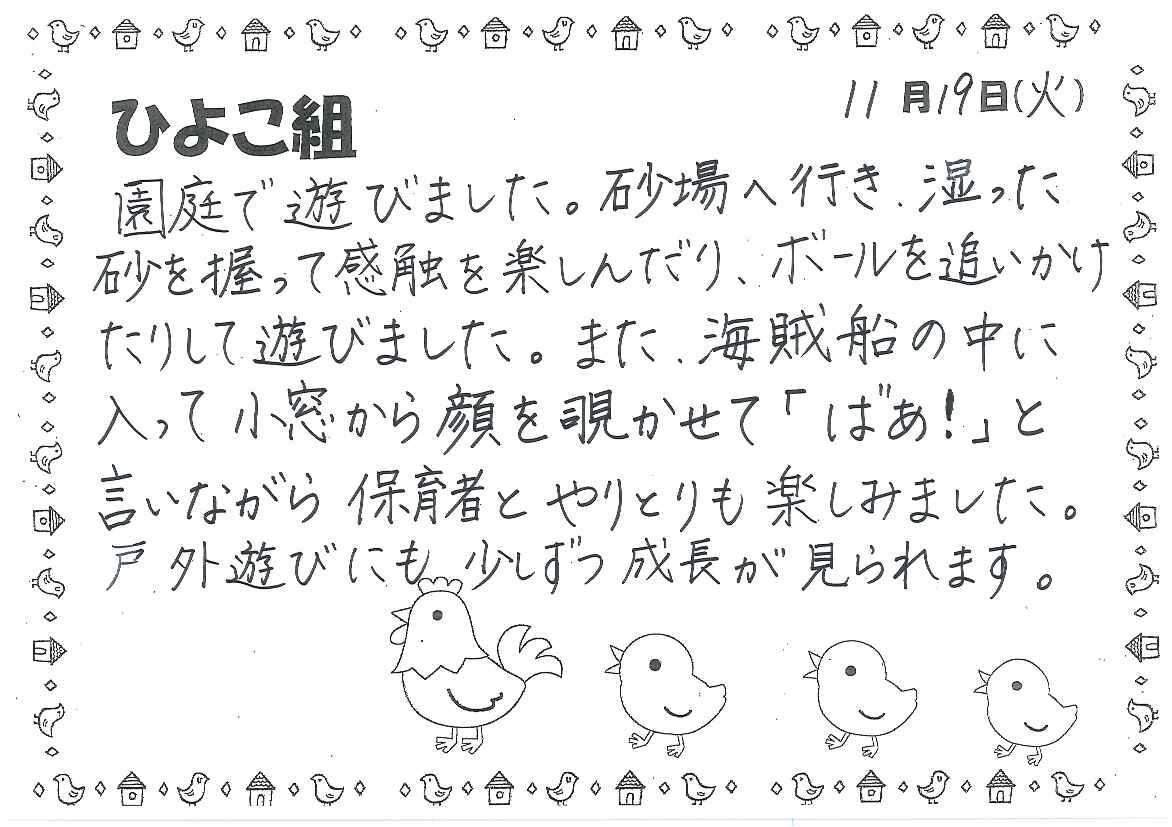 11月19日(火)
ひよこ組
園庭で遊びました。砂場へ行き、湿った
砂を握って感触を楽しんだり、ボールを追いかけ
たりして遊びました。また、海賊船の中に
入って小窓から顔を覗かせて「ばあ！」と
言いながら保育者とやりとりも楽しみました。
戸外遊びにも少しずつ成長が見られます。